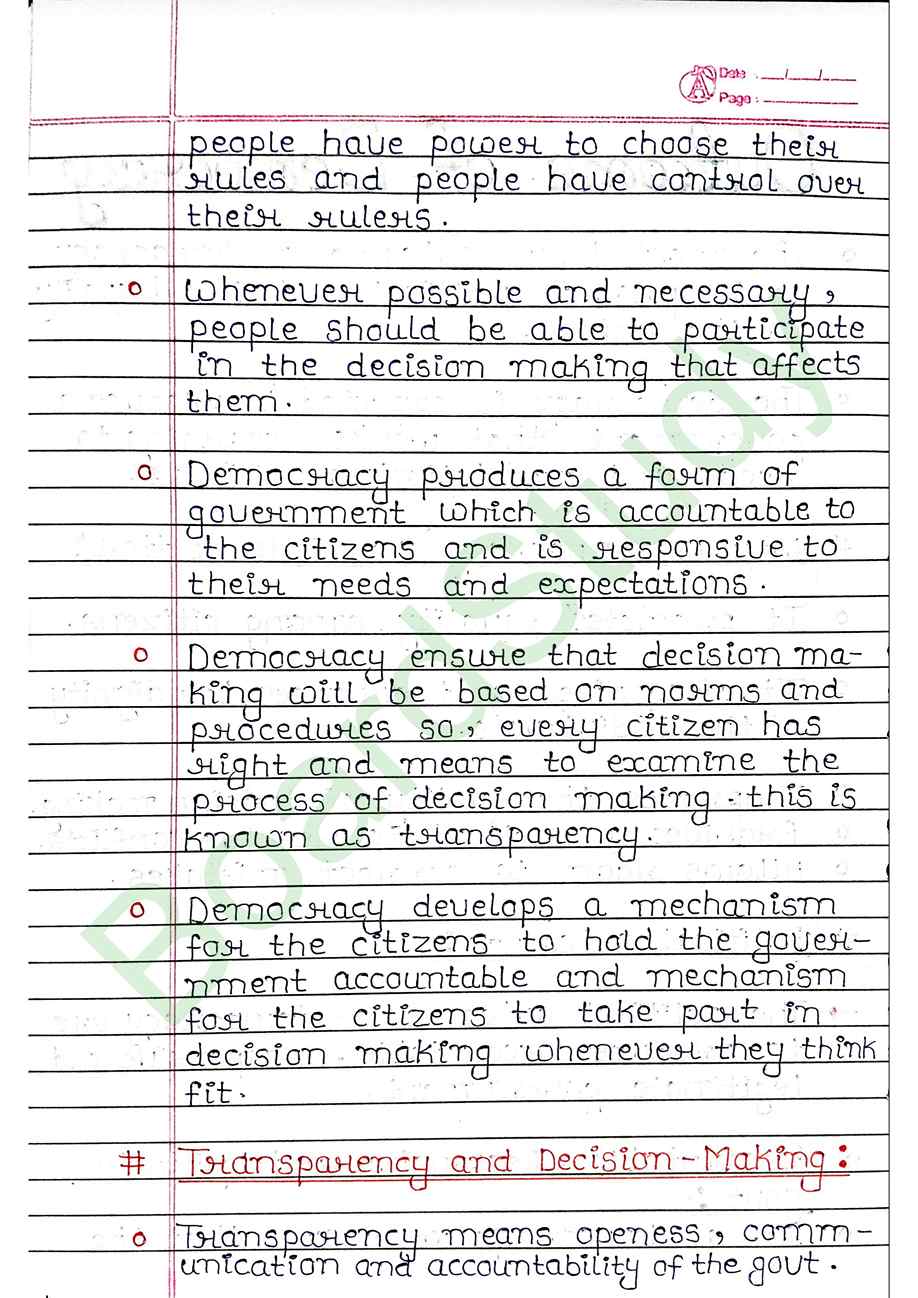 Date : __/__/__
Page : ______
people have power to choose their
rules and people have control over
their rulers.
o Whenever possible and necessary,
people should be able to participate
in the decision making that affects
them.
o Democracy produces a form of
government which is accountable to
the citizens and is responsive to
their needs and expectations.
o Democracy ensure that decision ma-
king will be based on norms and
procedures so, every citizen has
right and means to examine the
process of decision making. this is
known as transparency.
o Democracy develops a mechanism
for the citizens to hold the gover-
nment accountable and mechanism
for the citizens to take part in
decision making whenever they think
fit.
# Transparency and Decision-Making:
o Transparency means openess, comm-
unication and accountability of the govt.
BoardStudy